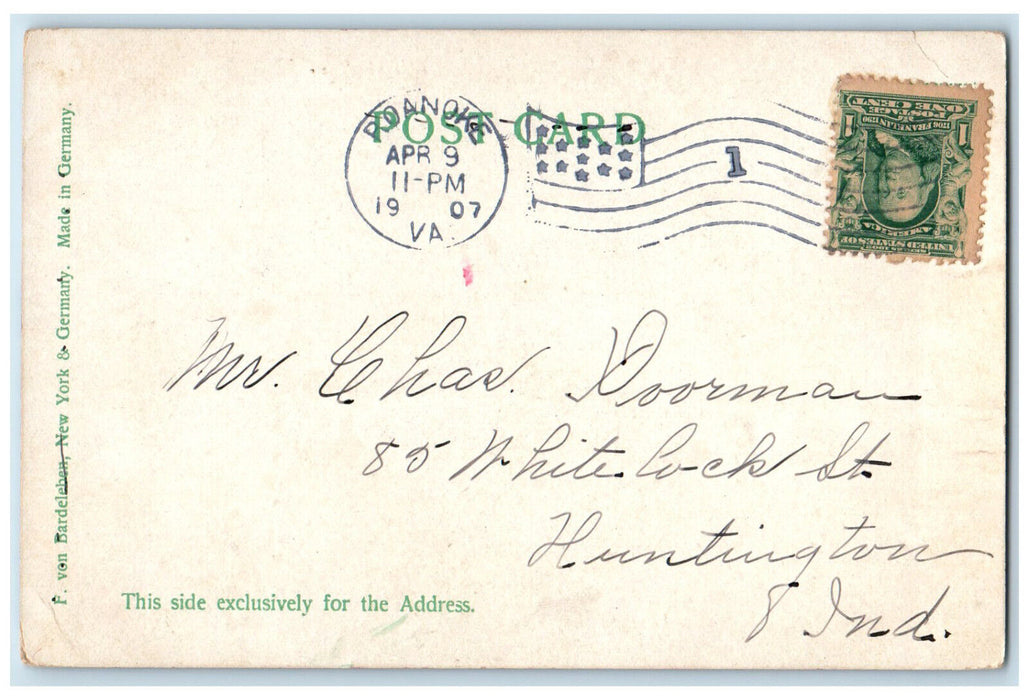 POST CARD
ROANOKE
APR 9
11-PM
19 07
VA.
1
1 ONE CENT 1
POSTAGE
1706 FRANKLIN 1790
AMERICA
SERIES 1902
UNITED STATES OF
F. von Bardeleben, New York & Germany. Made in Germany.
Mr. Chas. Doorman
85 Whitelock St.
Huntington
Ind.
This side exclusively for the Address.